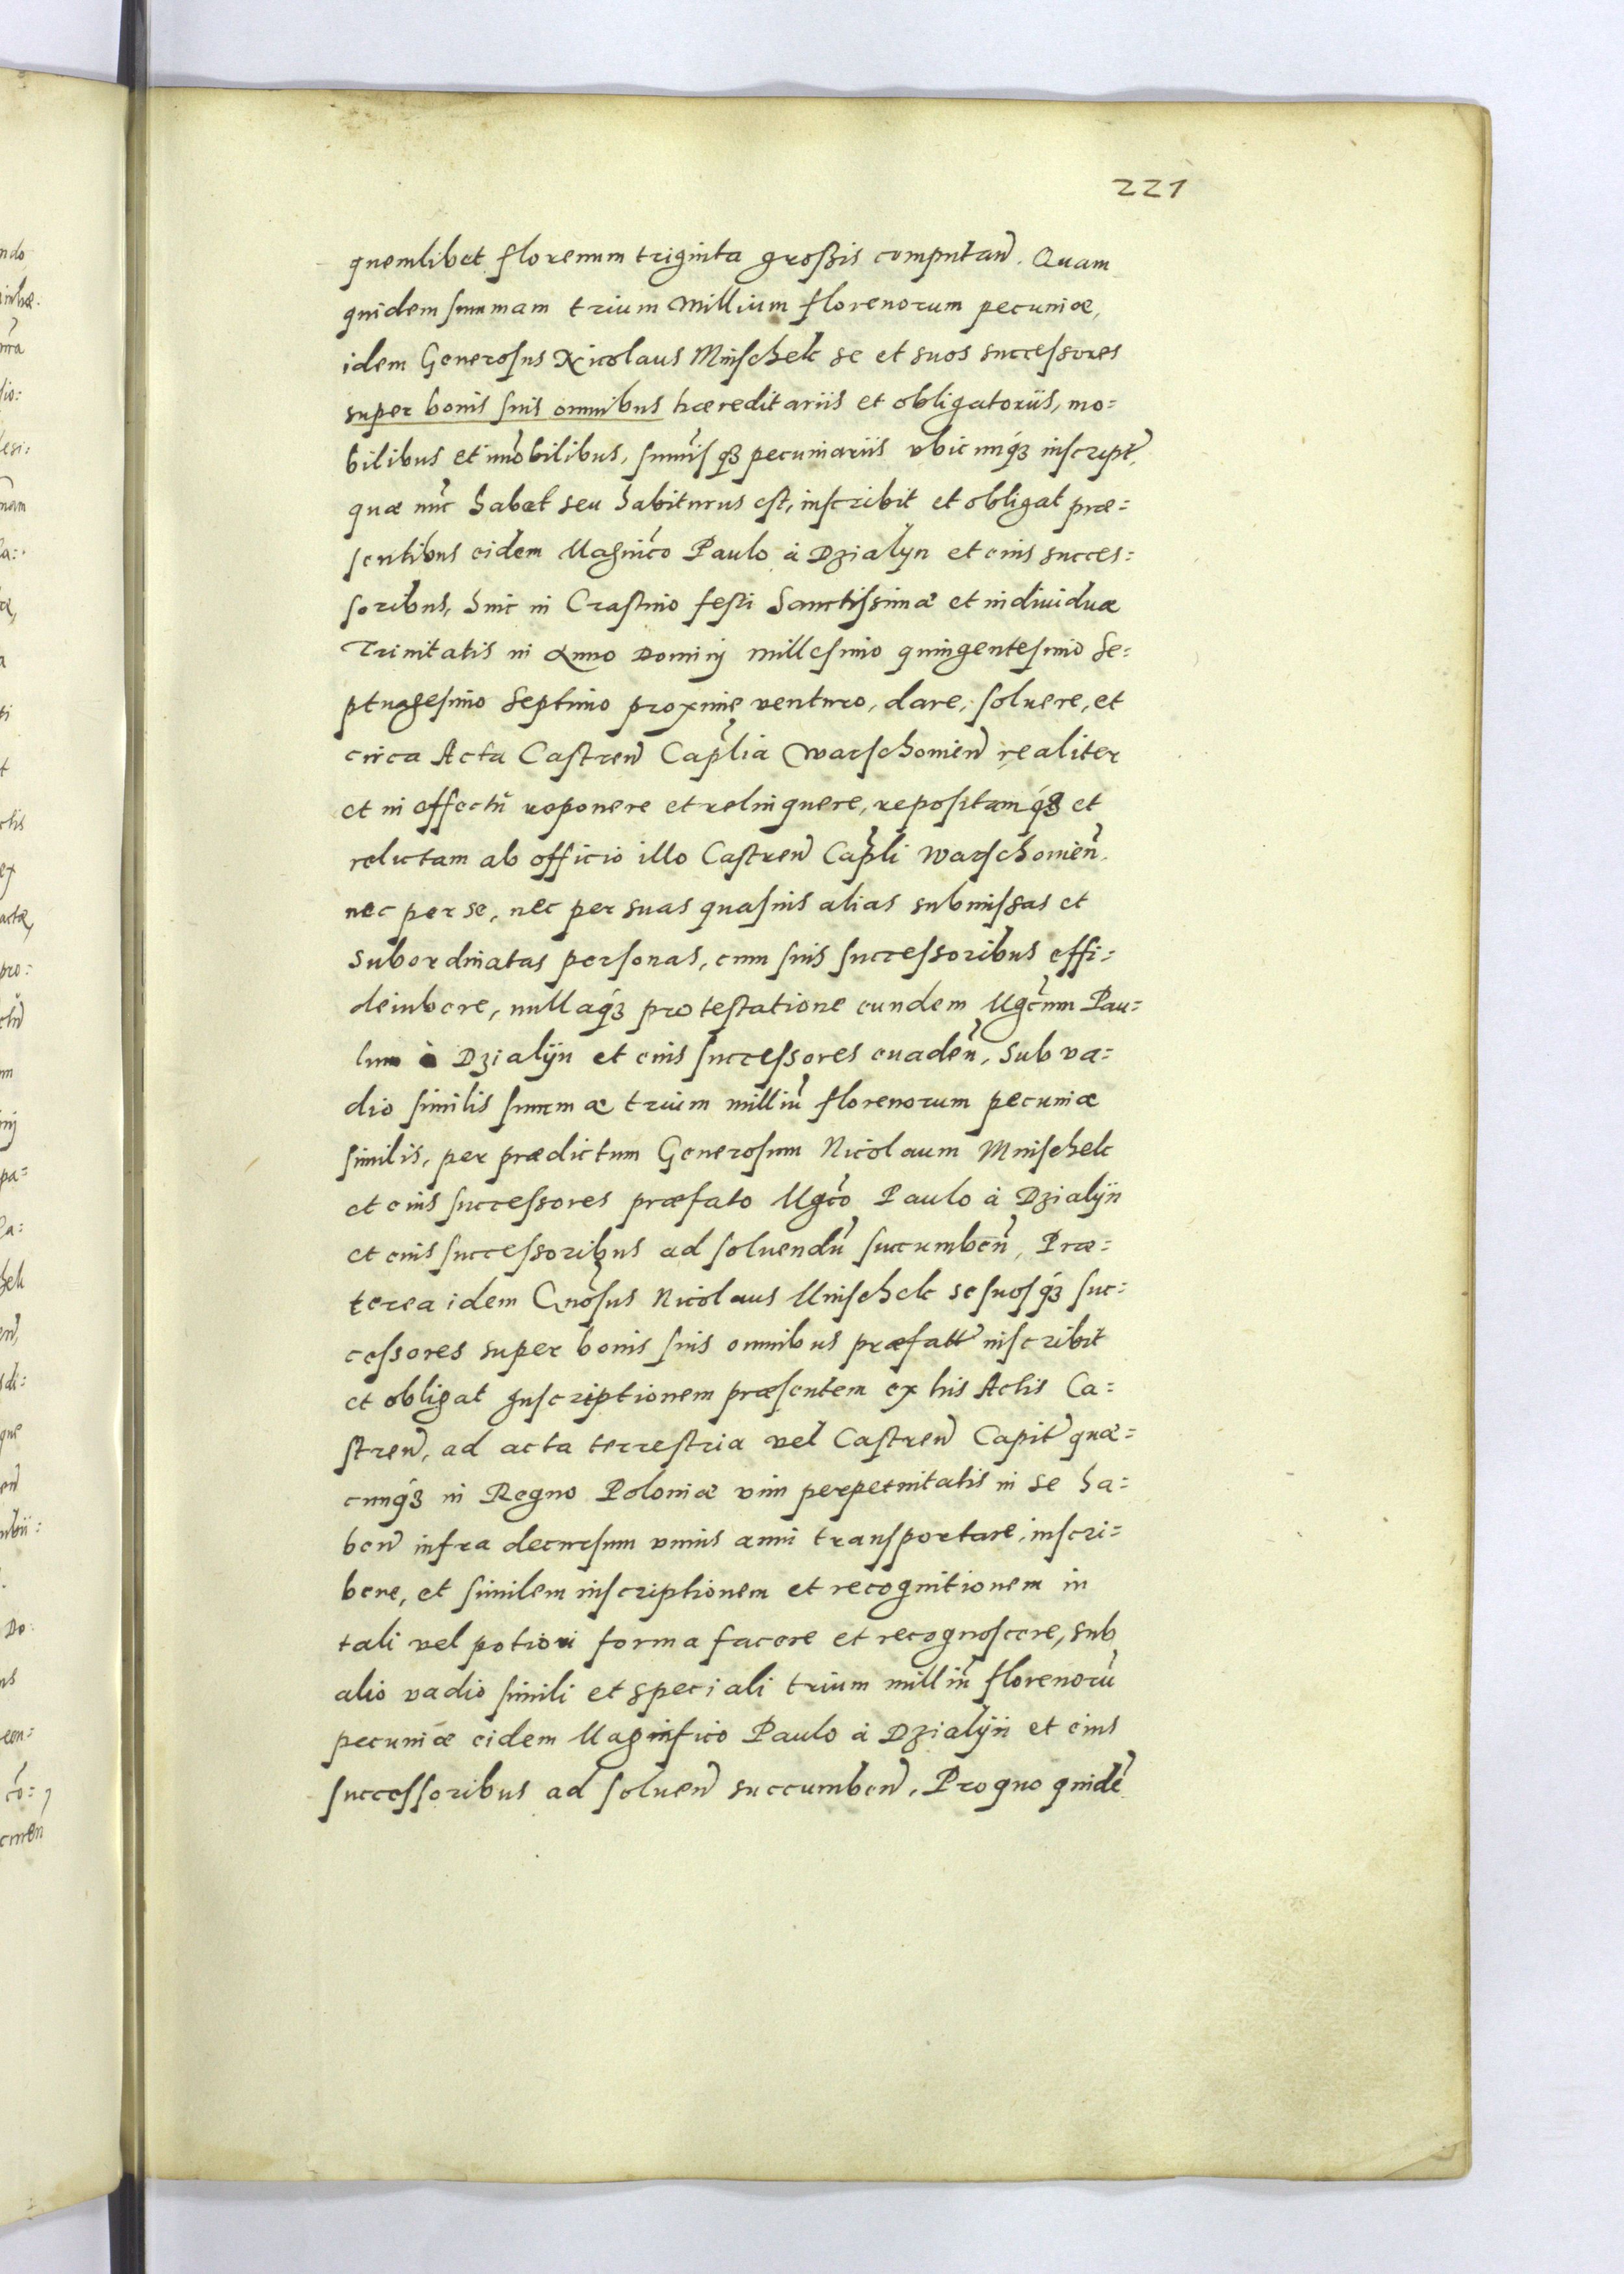 221
quemlibet florenum triginta großis computan̄. Quam
quidem summam trium Millium florenorum pecuniæ,
idem Generosus Nicolaus Mnischek se et suos successores
super bonis suis omnibus hæreditariis et obligatoriis, mo=
bilibus et im̄obilibus, sum̄isq́ꝫ pecuniariis vbicunq́ꝫ inscript̄,
quæ nūc habet seu habiturus est, inscribit et obligat præ=
sentibus eidem Magnīco Paulo à Dzialyn et eius succes=
soribus, hinc in Crastino festi Sanctissimæ et indiuiduæ
Trinitatis in Anno Dominj millesimo quingentesimo Se=
ptuagesimo Septimo proxime venturo, dare, soluere, et
circa Acta Castren̄ Cap̄lia Warschouien̄ realiter
et in effectū reponere et relinquere, repositamq́ꝫ et
relictam ab officio illo Castren̄ Cap̄li Warschouien̄.
nec per se, nec per suas quasuis alias submissas et
subordinatas personas, cum suis successoribus effi=
deiubere, nullaq́ꝫ protestatione eundem Mgc̄um Pau=
lum à Dzialÿn et eius successores euaden̄, Sub va=
dio similis summæ trium milliū florenorum pecuniæ
similis, per prædictum Generosum Nicolaum Mnischek
et eius successores præfato Mgc̄o Paulo à Dzialÿn
et eius successoribus ad soluendū succumben̄, Præ=
terea idem Gn̄osus Nicolaus Mnischek se suosq́ꝫ suc=
cessores super bonis suis omnibus præfatt̄ inscribit
et obligat Inscriptionem præsentem ex his Actis Ca=
stren̄, ad acta terrestria vel Castren̄ Capit̄ quæ=
cunq́ꝫ in Regno Poloniæ vim perpetuitatis in se ha=
ben̄ infra decursum vnius anni transportare, inscri=
bere, et similem inscriptionem et recognitionem in
tali vel potiori forma facere et recognoscere, sub
alio vadio simili et speciali trium milliū florenorū
pecuniæ eidem Magnifico Paulo à Dzialÿn et eius
successoribus ad soluen̄ succumben̄. Pro quo quidē